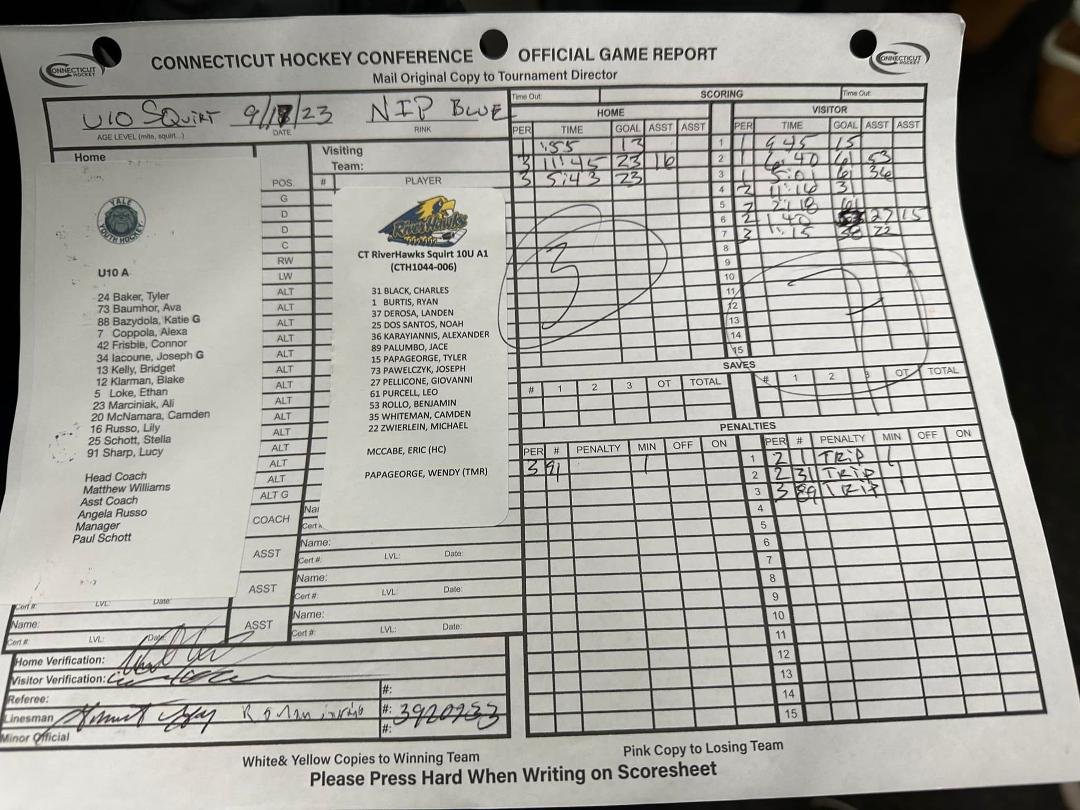 CONNECTICUT HOCKEY CONFERENCE OFFICIAL GAME REPORT
Mail Original Copy to Tournament Director
CONNECTICUT HOCKEY
CONNECTICUT HOCKEY
U10 SQUIRT 9/17/23 NIP BLUE
AGE LEVEL (mite, squirt...) DATE RINK
Home
YALE YOUTH HOCKEY
U10 A
24 Baker, Tyler
73 Baumhor, Ava
88 Bazydola, Katie G
7 Coppola, Alexa
42 Frisbie, Connor
34 Iacoune, Joseph G
13 Kelly, Bridget
12 Klarman, Blake
5 Loke, Ethan
23 Marciniak, Ali
20 McNamara, Camden
16 Russo, Lily
25 Schott, Stella
91 Sharp, Lucy
Head Coach
Matthew Williams
Asst Coach
Angela Russo
Manager
Paul Schott
POS.
G
D
D
C
RW
LW
ALT
ALT
ALT
ALT
ALT
ALT
ALT
ALT
ALT
ALT
ALT
ALT
ALT
ALT G
COACH
ASST
ASST
ASST
Visiting
Team:
# PLAYER
RiverHawks
CT RiverHawks Squirt 10U A1
(CTH1044-006)
31 BLACK, CHARLES
1 BURTIS, RYAN
37 DEROSA, LANDEN
25 DOS SANTOS, NOAH
36 KARAYIANNIS, ALEXANDER
89 PALUMBO, JACE
15 PAPAGEORGE, TYLER
73 PAWELCZYK, JOSEPH
27 PELLICONE, GIOVANNI
61 PURCELL, LEO
53 ROLLO, BENJAMIN
35 WHITEMAN, CAMDEN
22 ZWIERLEIN, MICHAEL
MCCABE, ERIC (HC)
PAPAGEORGE, WENDY (TMR)
Name:
Cert #: LVL: Date:
Name:
Cert #: LVL: Date:
Name:
Cert #: LVL: Date:
Cert #: LVL: Date:
Name:
Cert #: LVL: Date:
Home Verification:
Visitor Verification:
Referee: #:
Linesman #: 3920233
Minor Official #:
Time Out: SCORING Time Out:
HOME
PER TIME GOAL ASST ASST
1 :55 13
3 11:45 23 16
3 5:43 23
3
VISITOR
PER TIME GOAL ASST ASST
1 1 9:45 15
2 1 6:40 61 53
3 1 5:01 61 36
4 2 11:16 31
5 2 2:18 61
6 2 1:40 27 15
7 3 1:15 22
8
9
10
11
12
13
14
15
7
SAVES
# 1 2 3 OT TOTAL
# 1 2 3 OT TOTAL
PENALTIES
PER # PENALTY MIN OFF ON
3 91 1
PER # PENALTY MIN OFF ON
1 2 1 TRIP 1
2 2 31 TRIP
3 3 89 TRIP
4
5
6
7
8
9
10
11
12
13
14
15
White& Yellow Copies to Winning Team
Pink Copy to Losing Team
Please Press Hard When Writing on Scoresheet